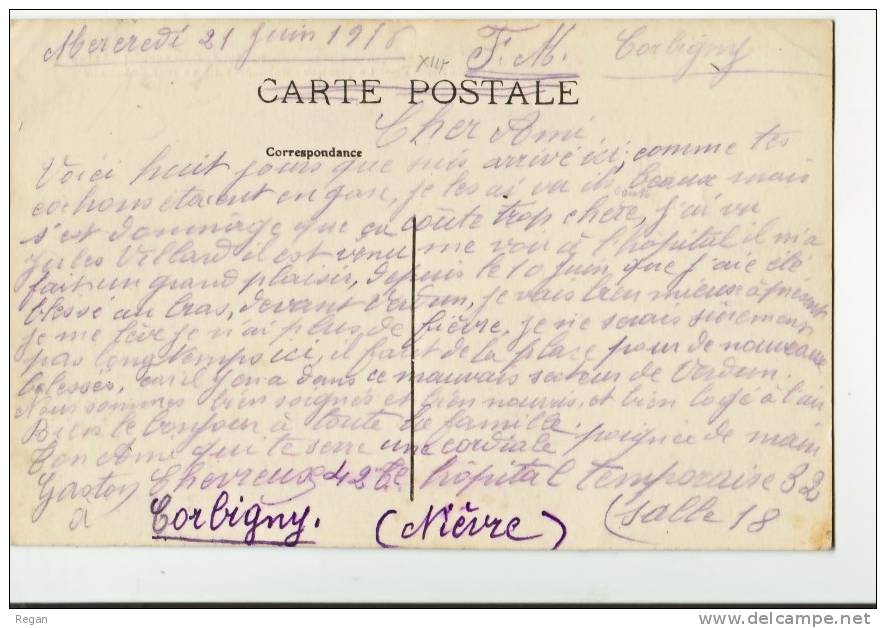 Mercredi 21 Juin 1916 F. M. Corbigny
CARTE POSTALE
Cher Ami
Correspondance
Voici huit jours que suis arrivé ici, comme tes
cochons étaient en gare, je les ai vu ils sont beaux mais
s'est dommage que ça coûte trop chère, j'ai vu
Jules Villard il est venu me voir à l'hôpital il m'a
fait un grand plaisir, depuis le 10 juin que j'aie été
blessé au bras, devant Verdun, je vais bien mieux à présent
je me lève je n'ai plus de fièvre, je ne serais sûrement
pas longtemps ici, il faut de la place pour de nouveaux
blessés, car il y en a dans ce mauvais secteur de Verdun.
Nous sommes bien soignés et bien nourris, et bien logé à l'air
Bien le bonjour à toute la famille.
Ton Ami qui te serre une cordiale poignée de main
Gaston Chevreux 42e hôpital temporaise 32
à Corbigny. (Nièvre) (Salle 18
Regan
www.delcampe.net